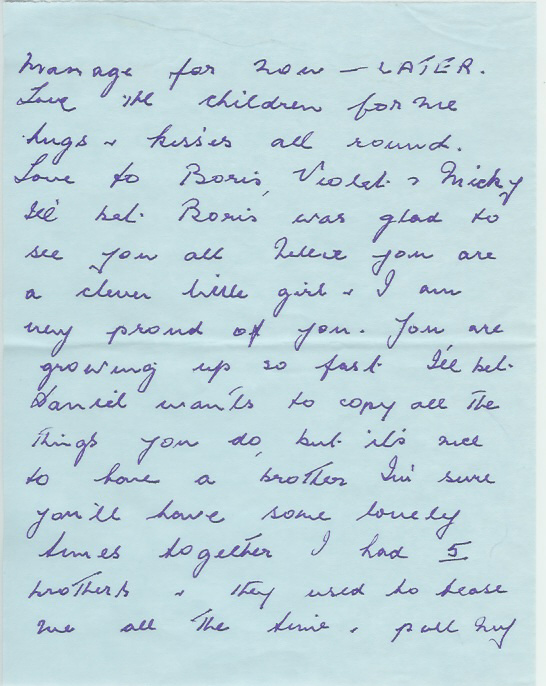 manage for now — LATER.
Love the children for me
hugs & kisses all round.
Love to Boris, Violet & Micky
I'll bet Boris was glad to
see you all you are
a clever little girl & I am
very proud of you. You are
growing up so fast I'll bet
Daniel wants to copy all the
things you do, but it's nice
to have a brother I'm sure
you'll have some lovely
times together I had 5
brothers & they used to tease
me all the time & pull my